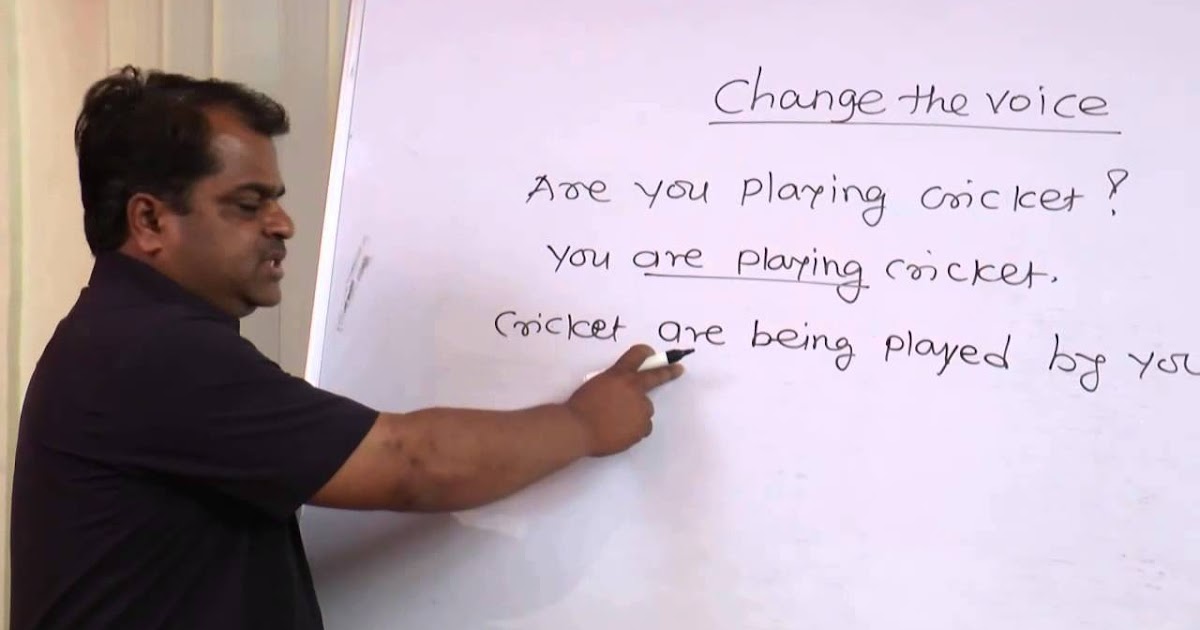 Change the voice
Are you playing cricket?
you are playing cricket.
Cricket are being played by you